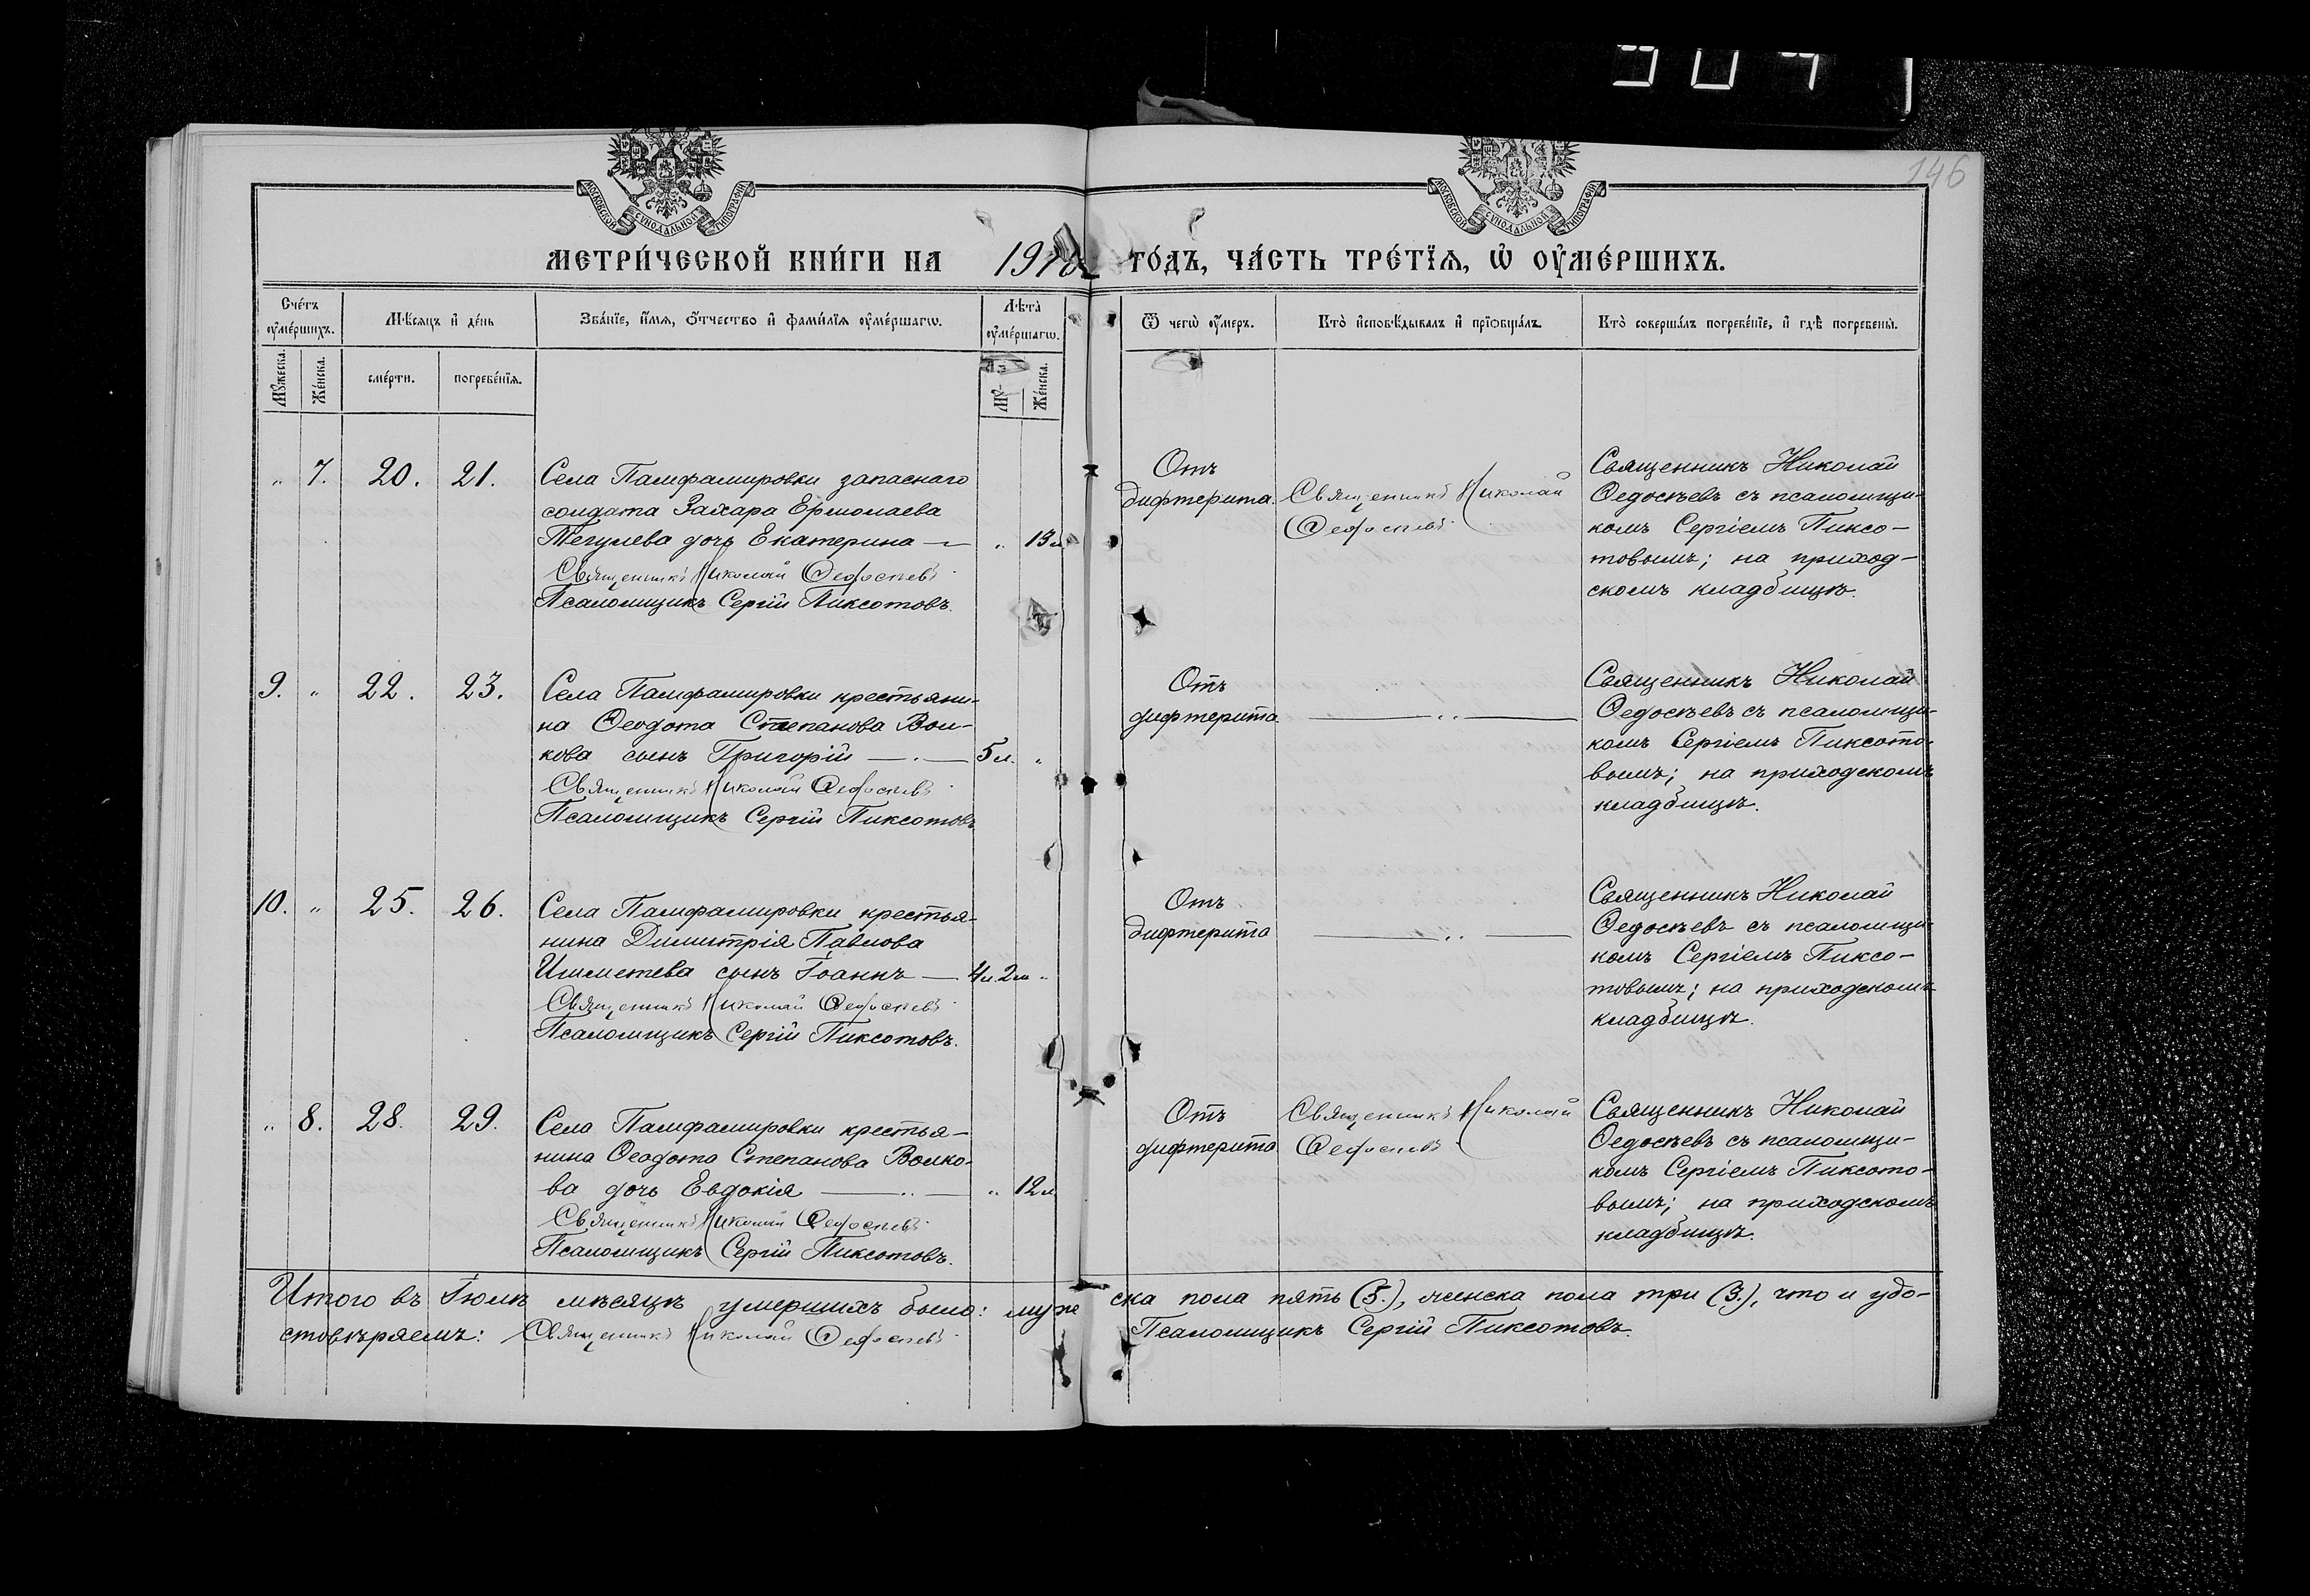 904
146
МОСКОВСКОЙ СѴНОДАЛЬНОЙ ТИПОГРАФІИ
МОСКОВСКОЙ СѴНОДАЛЬНОЙ ТИПОГРАФІИ
МЕТРИ́ЧЕСКОЙ КНИ́ГИ НА 1910 ГО́ДЪ, ЧА́СТЬ ТРЕ́ТЇѦ, Ѡ҆ ОУ҆МЕ́РШИХЪ.
Сче́тъ оу҆ме́ршихъ.
Мꙋ́жеска.
Же́нска.
Мѣ́сѧцъ и҆ де́нь
сме́рти.
погребе́нїѧ.
Зва́нїе, и҆́мѧ, ѻ҆́тчество и҆ фами́лїѧ оу҆ме́ршагѡ.
Лѣ́та оу҆ме́ршагѡ.
Же́нска.
Ѿ чегѡ̀ оу҆́меръ.
Кто̀ и҆сповѣ́дывалъ и҆ прїѻбща́лъ.
Кто̀ соверша́лъ погребе́нїе, и҆ гдѣ̀ погребены̀.
„ 7. 20. 21.
Села Памфамировки запаснаго
солдата Захара Ермолаева
Тегулева дочь Екатерина — „ 13 л
Священникъ Николай Ѳедосѣевъ
Псаломщикъ Сергій Пиксотовъ.
Отъ
дифтерита.
Священникъ Николай
Ѳедосѣевъ
Священникъ Николай
Ѳедосѣевъ съ псаломщи-
комъ Сергіемъ Пиксо-
товымъ; на приход-
скомъ кладбищѣ.
9. „ 22. 23.
Села Памфамировки крестьяни-
на Ѳеодота Степанова Вол-
кова сынъ Григорій — 5 л. „
Священникъ Николай Ѳедосѣевъ
Псаломщикъ Сергій Пиксотовъ
Отъ
дифтерита
— „ —
Священникъ Николай
Ѳедосѣевъ съ псаломщи-
комъ Сергіемъ Пиксото-
вымъ; на приходскомъ
кладбищѣ.
10. „ 25. 26.
Села Памфамировки крестья-
нина Димитрія Павлова
сынъ Іоаннъ — 4 л. 2 м „
Священникъ Николай Ѳедосѣевъ
Псаломщикъ Сергій Пиксотовъ.
Отъ
дифтерита
— „ —
Священникъ Николай
Ѳедосѣевъ съ псаломщи-
комъ Сергіемъ Пиксо-
товымъ; на приходскомъ
кладбищѣ.
„ 8. 28. 29.
Села Памфамировки крестья-
нина Ѳеодота Степанова Волко-
ва дочь Евдокія — „ 12 л
Священникъ Николай Ѳедосѣевъ
Псаломщикъ Сергій Пиксотовъ.
Отъ
дифтерита
Священникъ Николай
Ѳедосѣевъ
Священникъ Николай
Ѳедосѣевъ съ псаломщи-
комъ Сергіемъ Пиксото-
вымъ; на приходскомъ
кладбищѣ.
Итого въ Іюлѣ мѣсяцѣ умершихъ было: муже ска пола пять (5.), женска пола три (3.), что и удо-
стовѣряемъ: Священникъ Николай Ѳедосѣевъ Псаломщикъ Сергій Пиксотовъ.